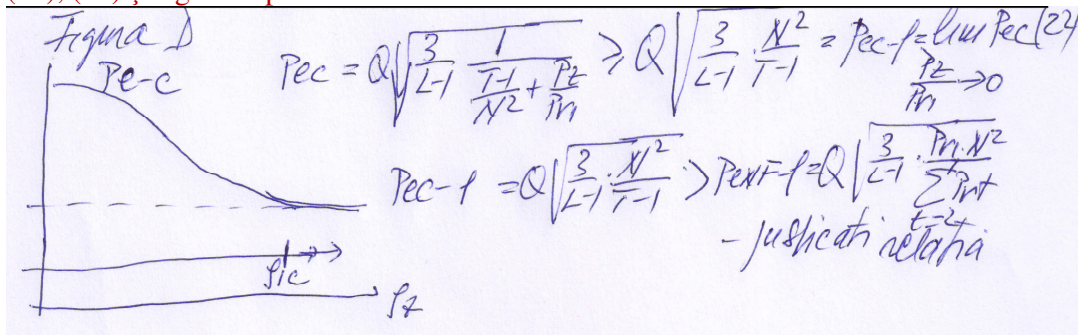 Figura D
Pe-c
Pec = Q√(3/(L-1) · 1/((T-1)/N² + Pz/Pr1)) ≥ Q√(3/(L-1) · N²/(T-1)) = Pec-f = lim Pec (22)
Pz/Pr1 → 0
Pec-f = Q√(3/(L-1) · N²/(T-1)) > Pext-f = Q√(3/(L-1) · Pr1·N²/∑ Prt)
t=2
- justificati relatia
ρic
ρz